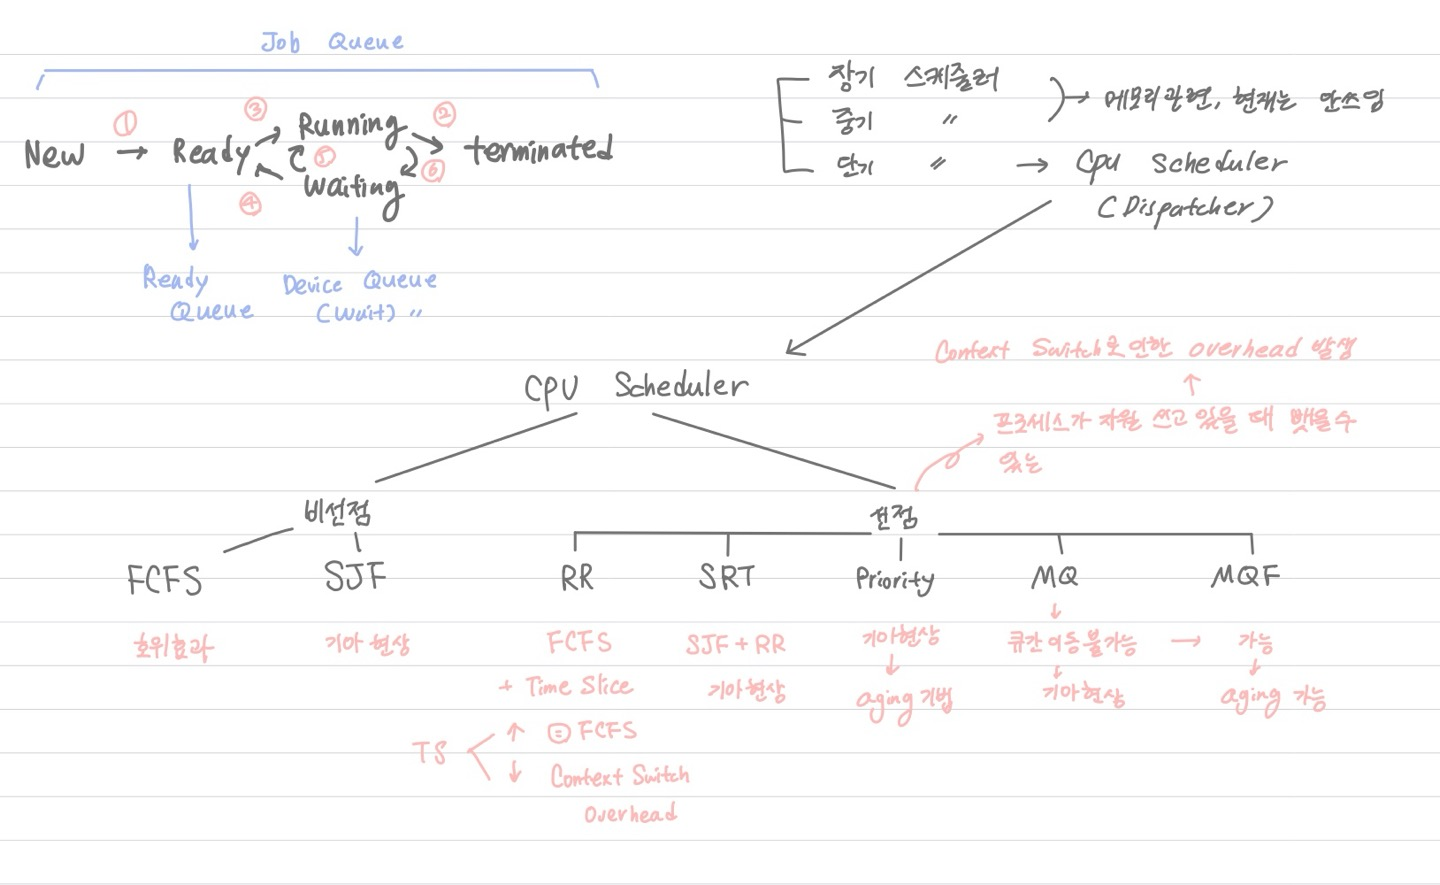 Job Queue
① ③ ②
New → Ready Running terminated
⑤ ⑥
④ Waiting
Ready Queue
Device Queue
(Wait) 〃
장기 스케줄러
중기 〃
→ 메모리관련, 현재는 안쓰임
단기 〃 → Cpu Scheduler
(Dispatcher)
CPU Scheduler
Context Switch로 인한 overhead 발생
↑
프로세스가 자원 쓰고 있을 때 뺏을수
있는
비선점 선점
FCFS SJF RR SRT Priority MQ MQF
호위효과
기아현상
FCFS
+ Time Slice
TS
↑ = FCFS
↓ Context Switch
Overhead
SJF + RR
기아현상
기아현상
↓
aging 기법
↓
큐간 이동 불가능 → 가능
↓
기아현상
↓
aging 가능